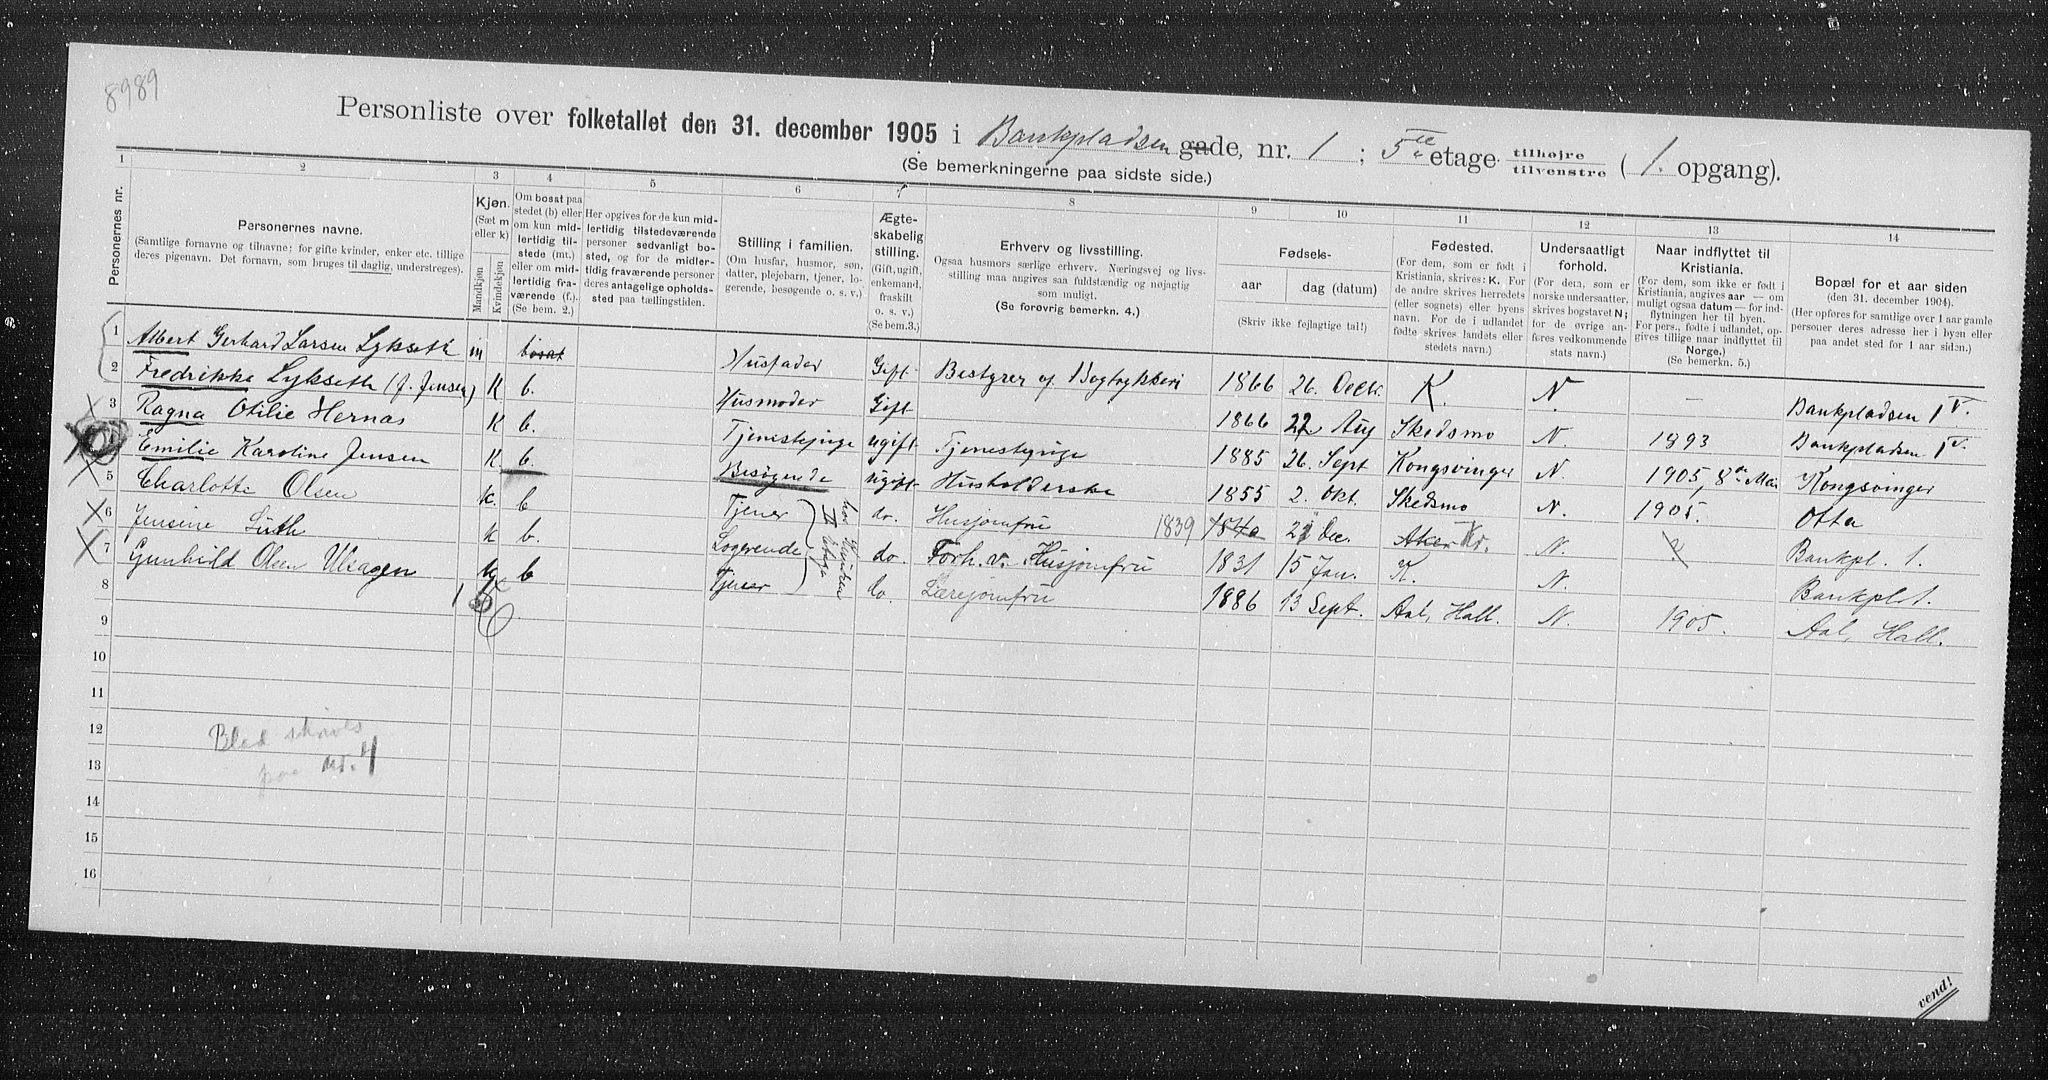 8989
Personliste over folketallet den 31. december 1905 i Bankpladsen gade, nr. 1 ; 5te etage tilhøjre tilvenstre ( 1. opgang).
(Se bemerkningerne paa sidste side.)
1 2 3 4 5 6 7 8 9 10 11 12 13 14
Personernes nr.
Personernes navne.
(Samtlige fornavne og tilnavne; for gifte kvinder, enker etc. tillige
deres pigenavn. Det fornavn, som bruges til daglig, understreges).
Kjøn.
(Sæt m
eller k)
Mandkjøn
Kvindekjøn
Om bosat paa
stedet (b) eller
om kun mid-
lertidig til-
stede (mt.)
eller om mid-
lertidig fra-
værende (f.).
(Se bem. 2.)
Her opgives for de kun mid-
lertidig tilstedeværende
personer sedvanligt bo-
sted, og for de midler-
tidig fraværende personer
deres antagelige opholds-
sted paa tællingstiden.
Stilling i familien.
(Om husfar, husmor, søn,
datter, plejebarn, tjener, lo-
gerende, besøgende o. s. v.)
Ægte-
skabelig
stilling.
(Gift, ugift,
enkemand,
fraskilt
o. s. v.)
(Se bem.3.)
Erhverv og livsstilling.
Ogsaa husmors særlige erhverv. Næringsvej og livs-
stilling maa angives saa fuldstændig og nøjagtig
som muligt.
(Se forøvrig bemerkn. 4.)
Fødsels-
aar
dag (datum)
(Skriv ikke fejlagtige tal!)
Fødested.
(For dem, som er født i
Kristiania, skrives: K. For
de andre skrives herredets
(eller sognets) eller byens
navn. For de i udlandet
fødte skrives landets eller
stedets navn.)
Undersaatligt
forhold.
(For dem, som er
norske undersaatter,
skrives bogstavet N;
for de øvrige an-
føres vedkommende
stats navn.)
Naar indflyttet til
Kristiania.
(For dem, som ikke er født i
Kristiania, angives aar — om
muligt ogsaa datum — for ind-
flytningen her til byen.
For pers., fødte i udlandet, op-
gives tillige naar indflyttet til
Norge.)
(Se bemerkn. 5.)
Bopæl for et aar siden
(den 31. december 1904).
(Her opføres for samtlige over 1 aar gamle
personer deres adresse her i byen eller
paa andet sted for 1 aar siden.)
1 Albert Gerhard Larsen Lykseth m bosat Husfader Gift Bestyrer af Bogtrykkeri 1866 26. Decbr. K. N. — Bankpladsen 1 V.
2 Fredrikke Lykseth (f. Jensen) K b. Husmoder Gift 1866 22 Aug Skedsmo N. 1893 Bankpladsen 1 V.
3 Ragna Otilie Hernas K b. Tjenestepige ugift Tjenestepige 1885 26. Sept Kongsvinger N. 1905, 8de Mai Kongsvinger
Emilie Karoline Jensen K. b. Besøgende ugift Husholderske 1855 2. Okt. Skedsmo N. 1905. Otta
5 Charlotte Olsen k. b Tjener do. Husjomfru 1839 1840 21 Dec. Aker Kr. N. Bankpl. 1.
6 Jensine Lüth k b. Logerende do. Forh. v. Husjomfru 1831 15 Jan. K. N. Bankpl. 1.
7 Gunhild Olsen Ulsagen k b Tjener do. Lærejomfru 1886 13 Sept. Aal, Hall. N. 1905. Aal, Hall.
8 1 6
9
10
11
12 Blad skrives
13 paa nr. 4
14
15
16
vend!